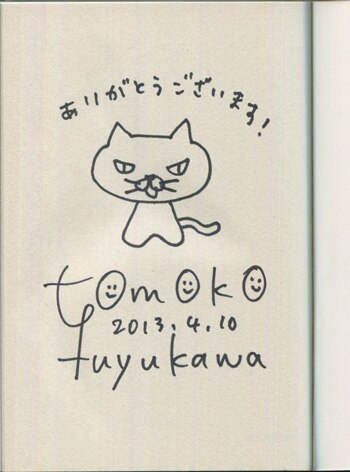 ありがとうございます!
tomoko
2013.4.10
fuyukawa